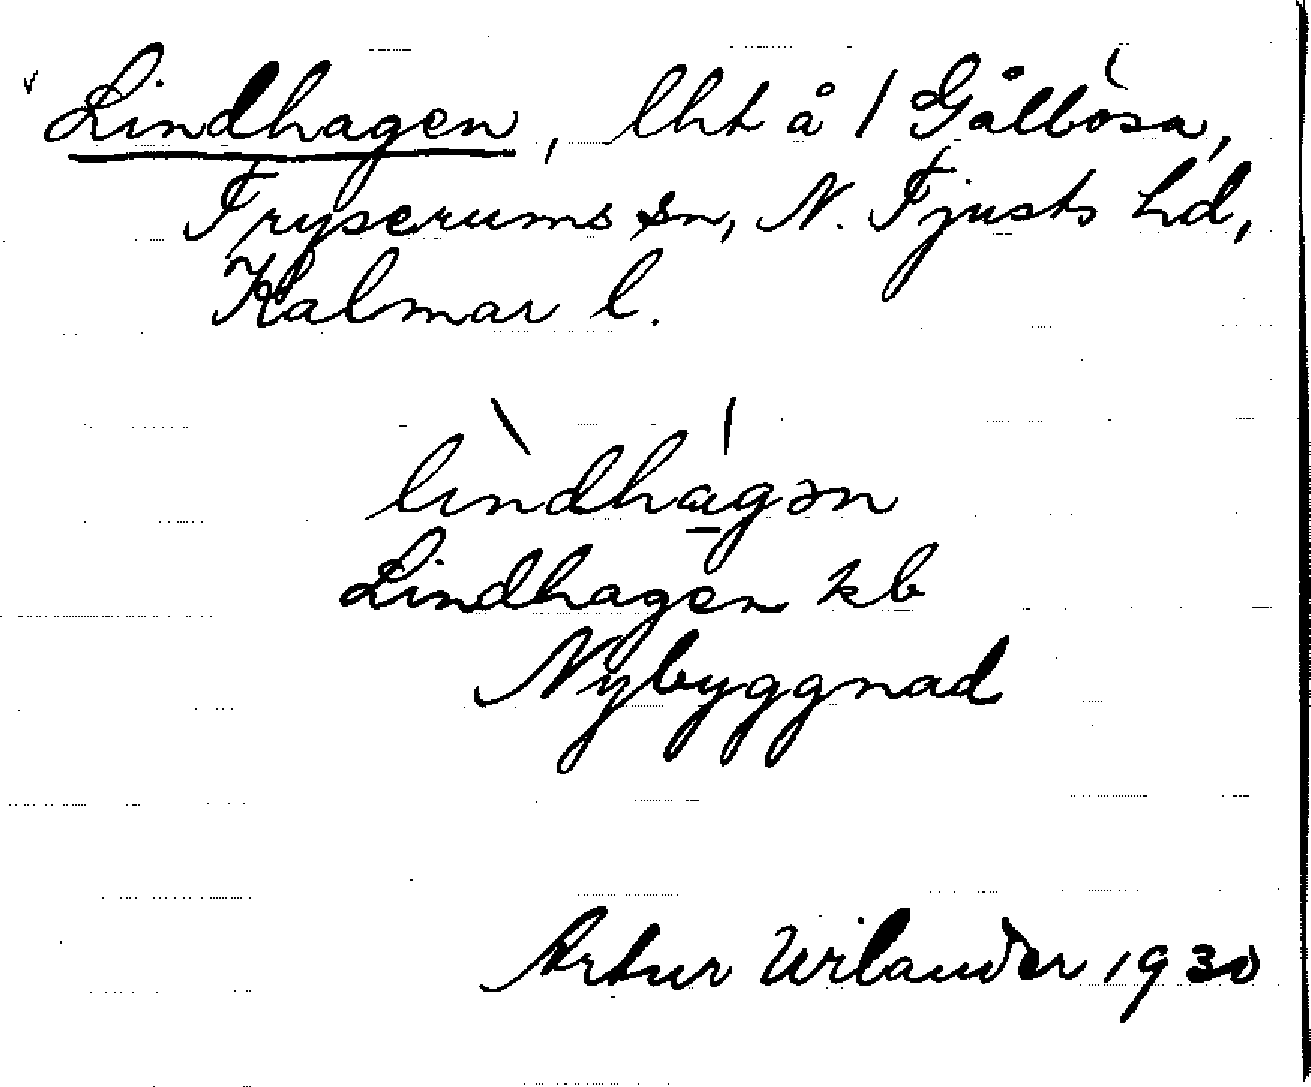 v Lindhagen, lht å / Gålbosa,
Tryserums sn, N. Tjusts hd,
Kalmar l.
lındhagən
Lindhagen kb
Nybyggnad
Artur Wilander 1930